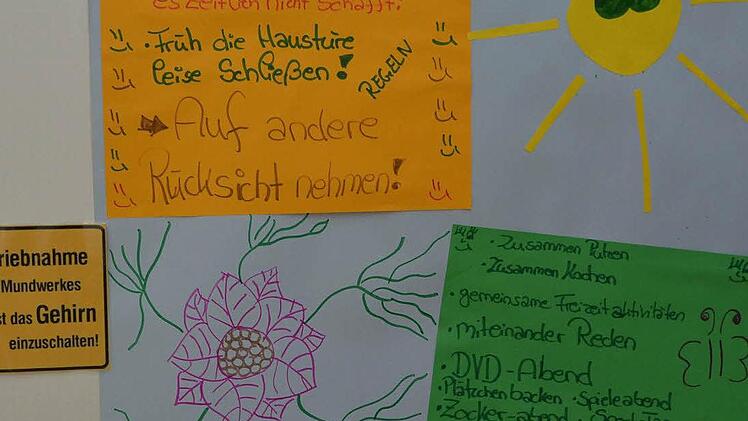 es zeitlich nicht schafft!
• Früh die Haustüre
leise Schließen!
REGELN
→ Auf andere
Rücksicht nehmen!
riebnahme
Mundwerkes
st das Gehirn
einzuschalten!
• Zusammen Putzen
• Zusammen Kochen
• gemeinsame Freizeitaktivitäten
• miteinander Reden
• DVD-Abend
• Plätzchen backen • Spieleabend
• Zocker-abend